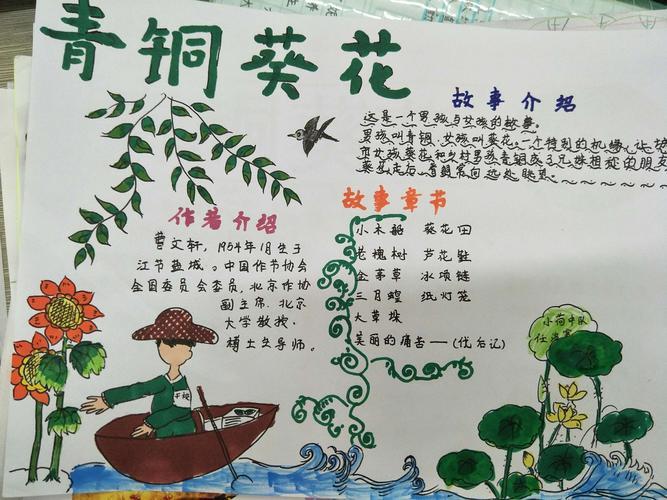 青铜葵花
故事介绍
这是一个男孩与女孩的故事。
男孩叫青铜,女孩叫葵花。一个特别的机缘,让城
市女孩葵花和乡村男孩青铜成了兄妹相称的朋
葵花走后,青铜常向远处眺望。
作者介绍
曹文轩,1954年1月生于
江节盐城。中国作节协会
全国委员会委员,北京作协
副主席.北京
大学教授.
博士生导师。
故事章节
小木船 葵花田
老槐树 芦花鞋
金茅草 冰项链
三月蝗 纸灯笼
大草垛
美丽的痛苦——(代后记)
小荷中队
任